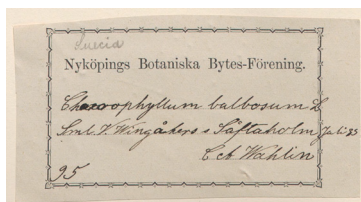 Suecia
Nyköpings Botaniska Bytes-Förening.
Chaerophyllum bulbosum L
Sml. V. Wingåkers s Säfstaholm Juli 85
C et Wahlin
95